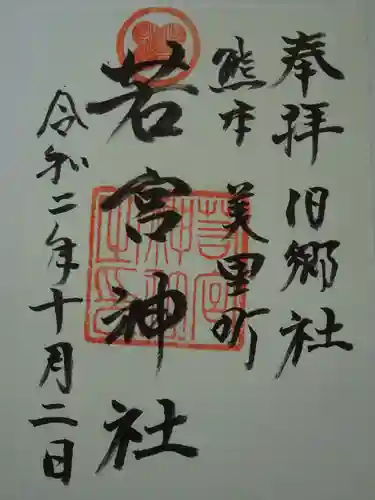 奉拝 旧郷社
熊本 美里町
若宮神社
令和二年十月二日